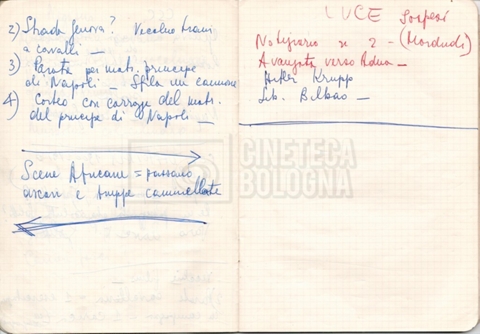 2) Strada Genova? Vecchio tram
a cavalli —
3) Parata per matr. principe
di Napoli — Sfila un cannone
4) Corteo con carrozze del matr.
del principe di Napoli —
Scene Africane = passano
ascari e truppe cammellate
LUCE Sospesi
Notiziario n 2 — (Mordudi)
Avanzata verso Adua —
Hitler Krupp
Lib. Bilbao —
CINETECA
BOLOGNA